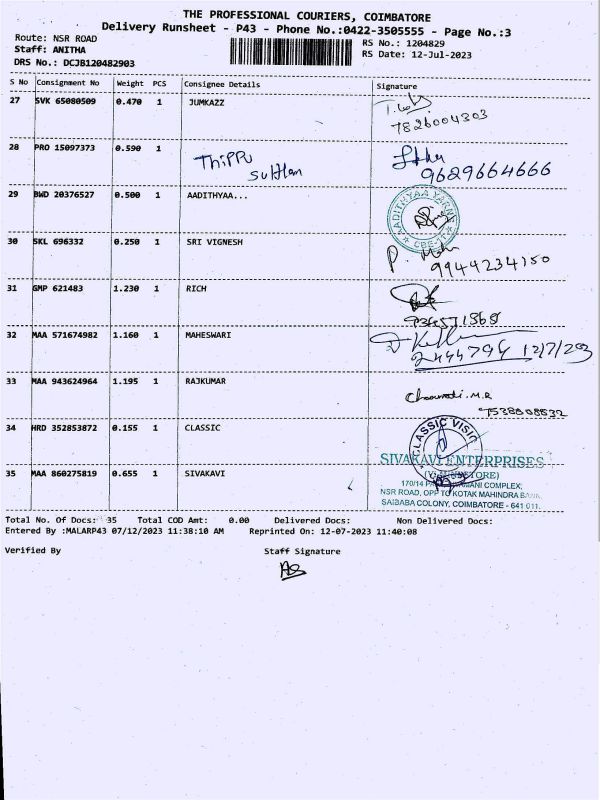 THE PROFESSIONAL COURIERS, COIMBATORE
Delivery Runsheet - P43 - Phone No.:0422-3505555 - Page No.:3
Route: NSR ROAD
Staff: ANITHA
DRS No.: DCJB120482903
RS No.: 1204829
RS Date: 12-Jul-2023
S No Consignment No Weight PCS Consignee Details Signature
27 SVK 65080509 0.470 1 JUMKAZZ
7826004303
28 PRO 15097373 0.590 1
Thippu
Sulthan
9629664666
29 BWD 20376527 0.500 1 AADITHYAA...
AADITHYAA YARNS
CBE-11
30 SKL 696332 0.250 1 SRI VIGNESH
9944234150
31 GMP 621483 1.230 1 RICH
32 MAA 571674982 1.160 1 MAHESWARI
2444794 12/7/203
33 MAA 943624964 1.195 1 RAJKUMAR
7538808532
34 HRD 352853872 0.155 1 CLASSIC
CLASSIC VISIO
SIVAKAVI ENTERPRISES
35 MAA 860275819 0.655 1 SIVAKAVI
170/14 COMPLEX,
NSR ROAD, OPP TO KOTAK MAHINDRA BANK,
SAIBABA COLONY, COIMBATORE - 641 011.
Total No. Of Docs: 35 Total COD Amt: 0.00 Delivered Docs: Non Delivered Docs:
Entered By :MALARP43 07/12/2023 11:38:10 AM Reprinted On: 12-07-2023 11:40:08
Verified By Staff Signature